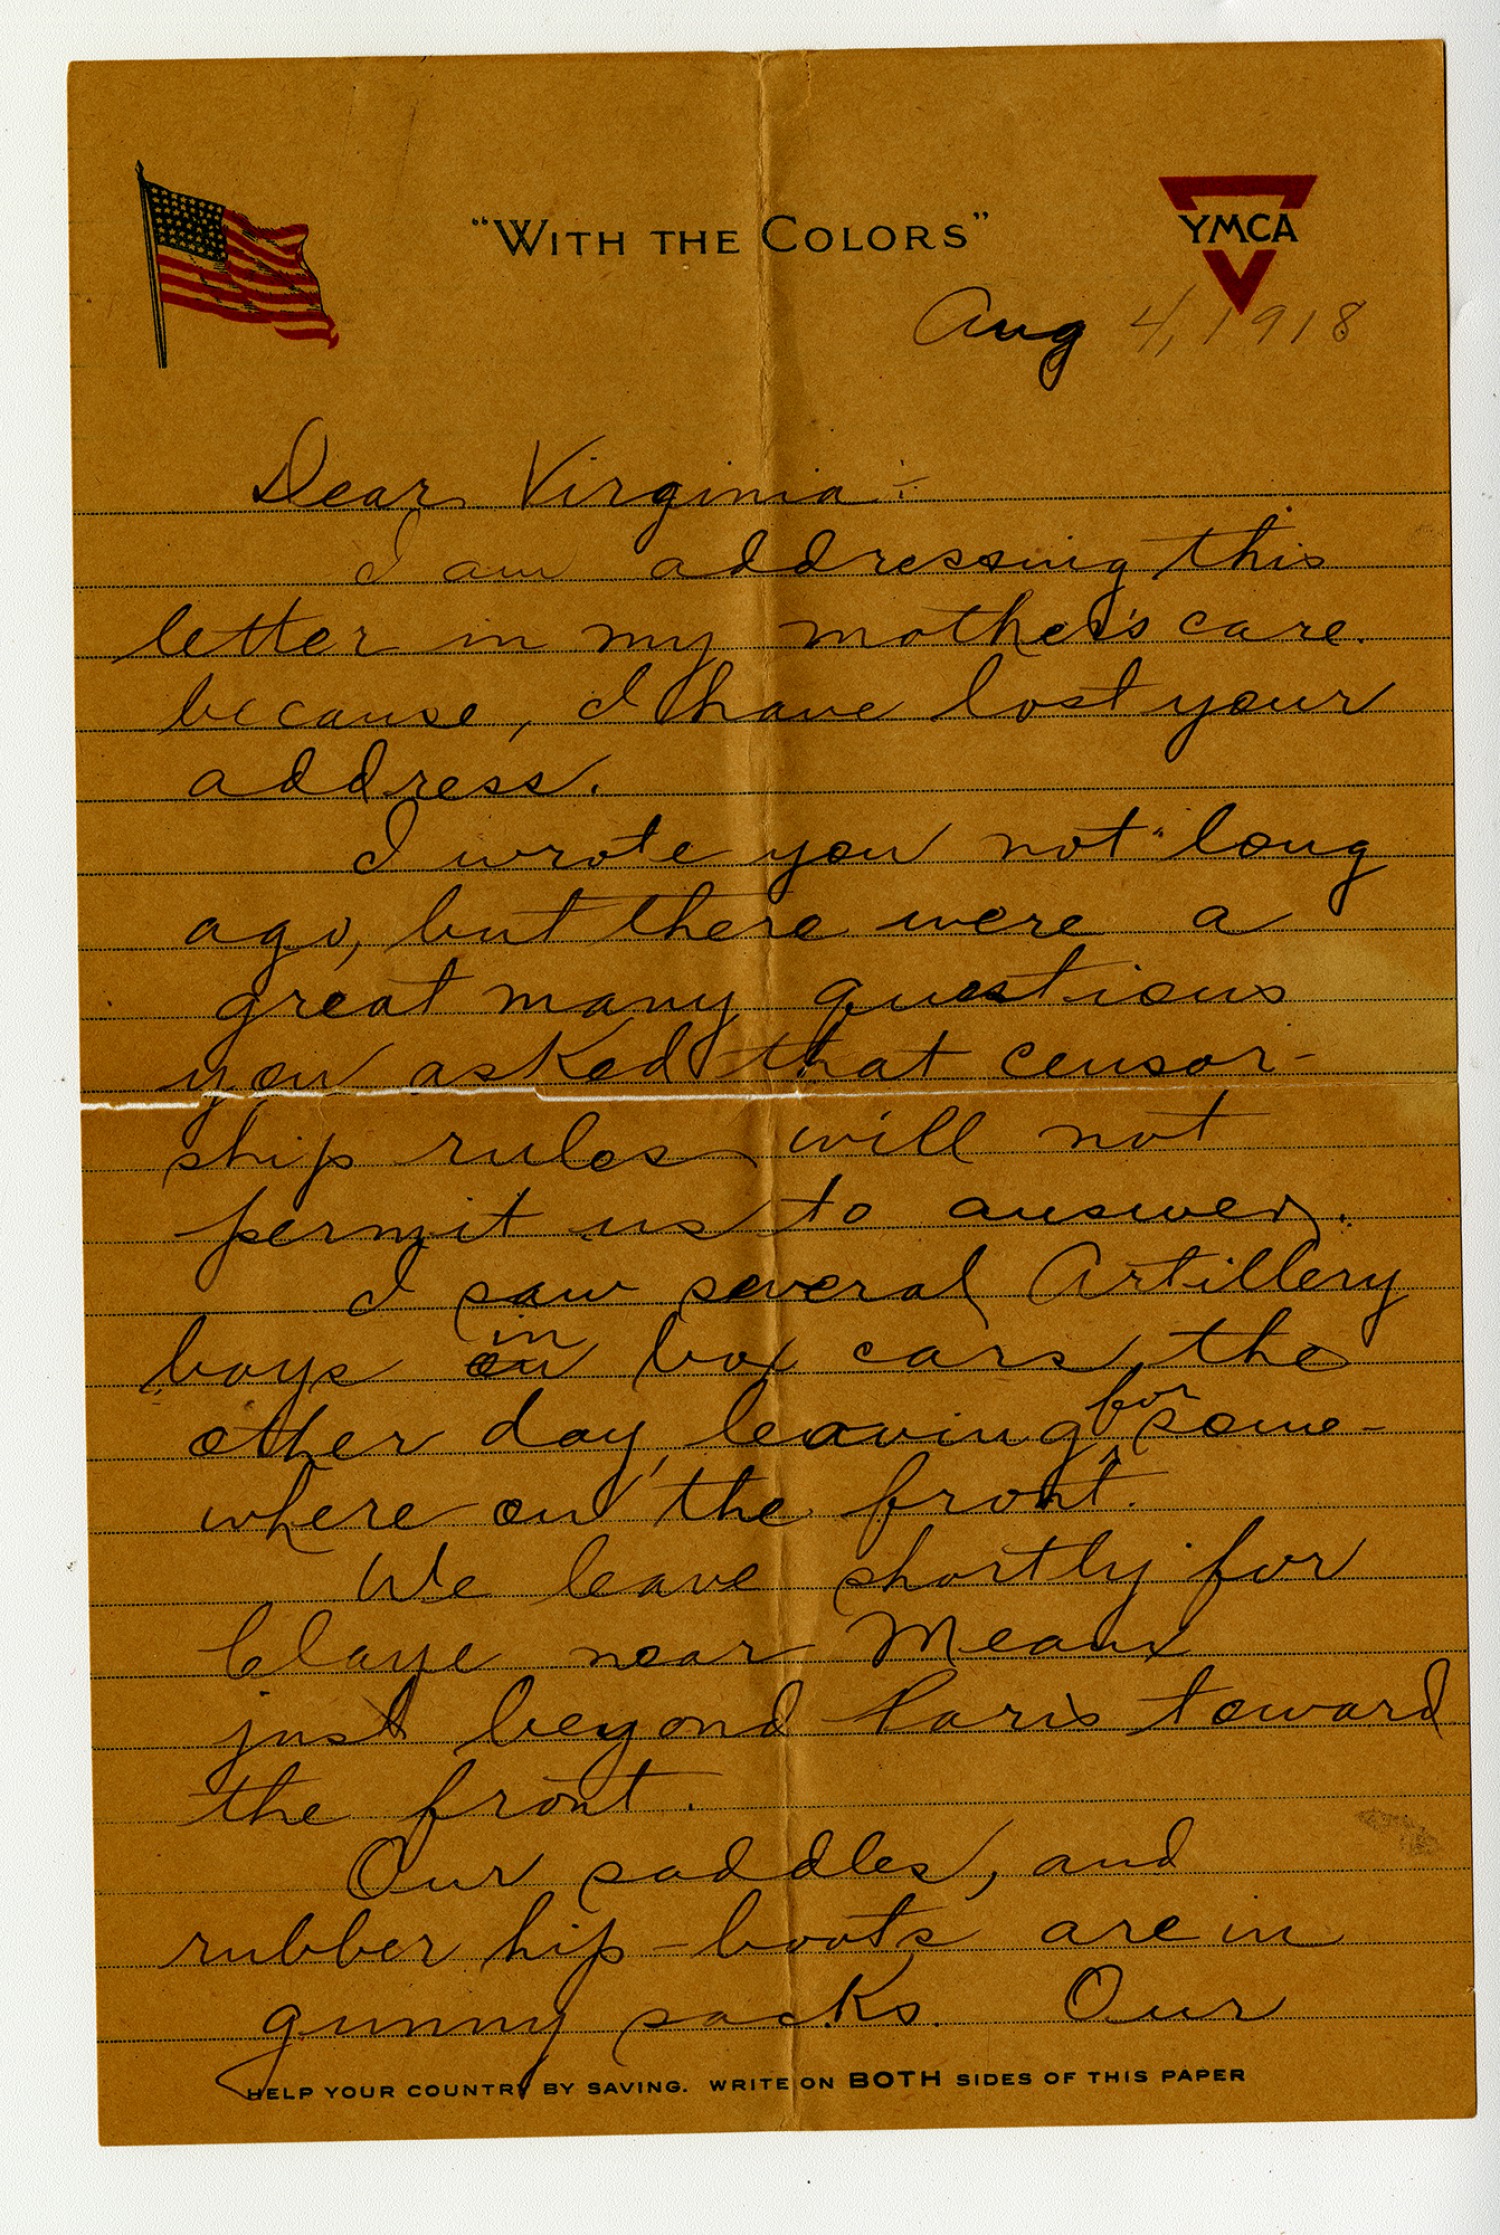 "WITH THE COLORS"
YMCA
Aug 4, 1918
Dear Virginia :-
I am addressing this
letter in my mother's care.
because, I have lost your
address.
I wrote you not long
ago, but there were a
great many questions
you asked that censor-
ship rules will not
permit us to answer.
I saw several Artillery
boys on in box cars, the
other day, leaving for some-
where on the front.
We leave shortly for
Claye near Meaux
just beyond Paris toward
the front.
Our saddles, and
rubber hip-boots are in
gunny sacks. Our
HELP YOUR COUNTRY BY SAVING. WRITE ON BOTH SIDES OF THIS PAPER